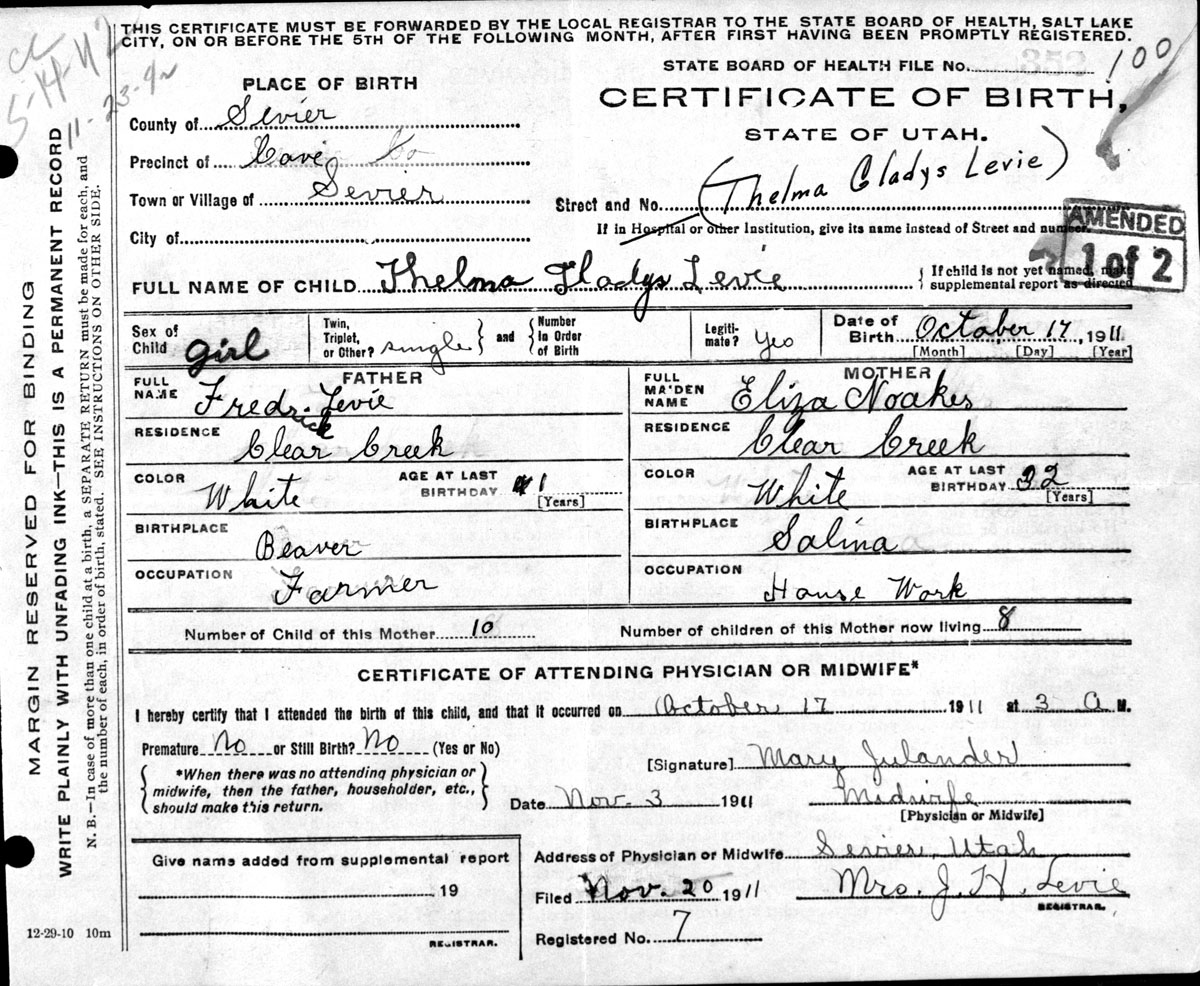 THIS CERTIFICATE MUST BE FORWARDED BY THE LOCAL REGISTRAR TO THE STATE BOARD OF HEALTH, SALT LAKE
CITY, ON OR BEFORE THE 5TH OF THE FOLLOWING MONTH, AFTER FIRST HAVING BEEN PROMPTLY REGISTERED.
5-14-42
11-23-42
STATE BOARD OF HEALTH FILE No. 352 100
PLACE OF BIRTH
CERTIFICATE OF BIRTH,
STATE OF UTAH.
County of Sevier
Precinct of Cove
Town or Village of Sevier
City of
Street and No. (Thelma Gladys Levie)
If in Hospital or other Institution, give its name instead of Street and number.
AMENDED
1 of 2
FULL NAME OF CHILD Thelma Gladys Levie
{ If child is not yet named, make
supplemental report as directed
Sex of Child girl
Twin, Triplet, or Other? single } and { Number in Order of Birth
Legitimate? Yes
Date of Birth October 17, 1911
[Month] [Day] [Year]
FATHER
FULL NAME Fredrick Levie
RESIDENCE Clear Creek
COLOR White
AGE AT LAST BIRTHDAY 41 [Years]
BIRTHPLACE Beaver
OCCUPATION Farmer
MOTHER
FULL MAIDEN NAME Eliza Noakes
RESIDENCE Clear Creek
COLOR White
AGE AT LAST BIRTHDAY 32 [Years]
BIRTHPLACE Salina
OCCUPATION House Work
Number of Child of this Mother 10
Number of children of this Mother now living 8
CERTIFICATE OF ATTENDING PHYSICIAN OR MIDWIFE*
I hereby certify that I attended the birth of this child, and that it occurred on October 17 1911 at 3 A M.
Premature No or Still Birth? No (Yes or No)
{ *When there was no attending physician or
midwife, then the father, householder, etc.,
should make this return. }
[Signature] Mary Julander
Date Nov. 3 1911
Midwife
[Physician or Midwife]
Give name added from supplemental report
19
REGISTRAR.
Address of Physician or Midwife Sevier, Utah
Filed Nov. 20 1911
Mrs. J. H. Levie
REGISTRAR.
Registered No. 7
12-29-10 10m
MARGIN RESERVED FOR BINDING
WRITE PLAINLY WITH UNFADING INK—THIS IS A PERMANENT RECORD
N. B.—In case of more than one child at a birth, a SEPARATE RETURN must be made for each, and
the number of each, in order of birth, stated. SEE INSTRUCTIONS ON OTHER SIDE.